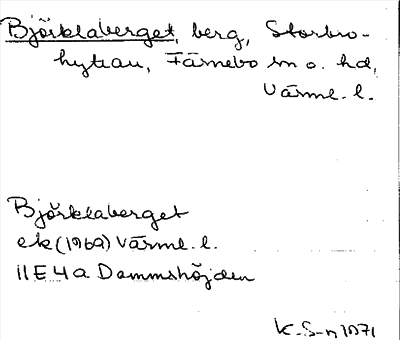 Björklaberget, berg, Storbro-
hyttan, Färnebo sn o. hd,
Värml. l.
Björklaberget
ek (1969) Värml. l.
11E4a Dammshöjden
K.S-n 1971